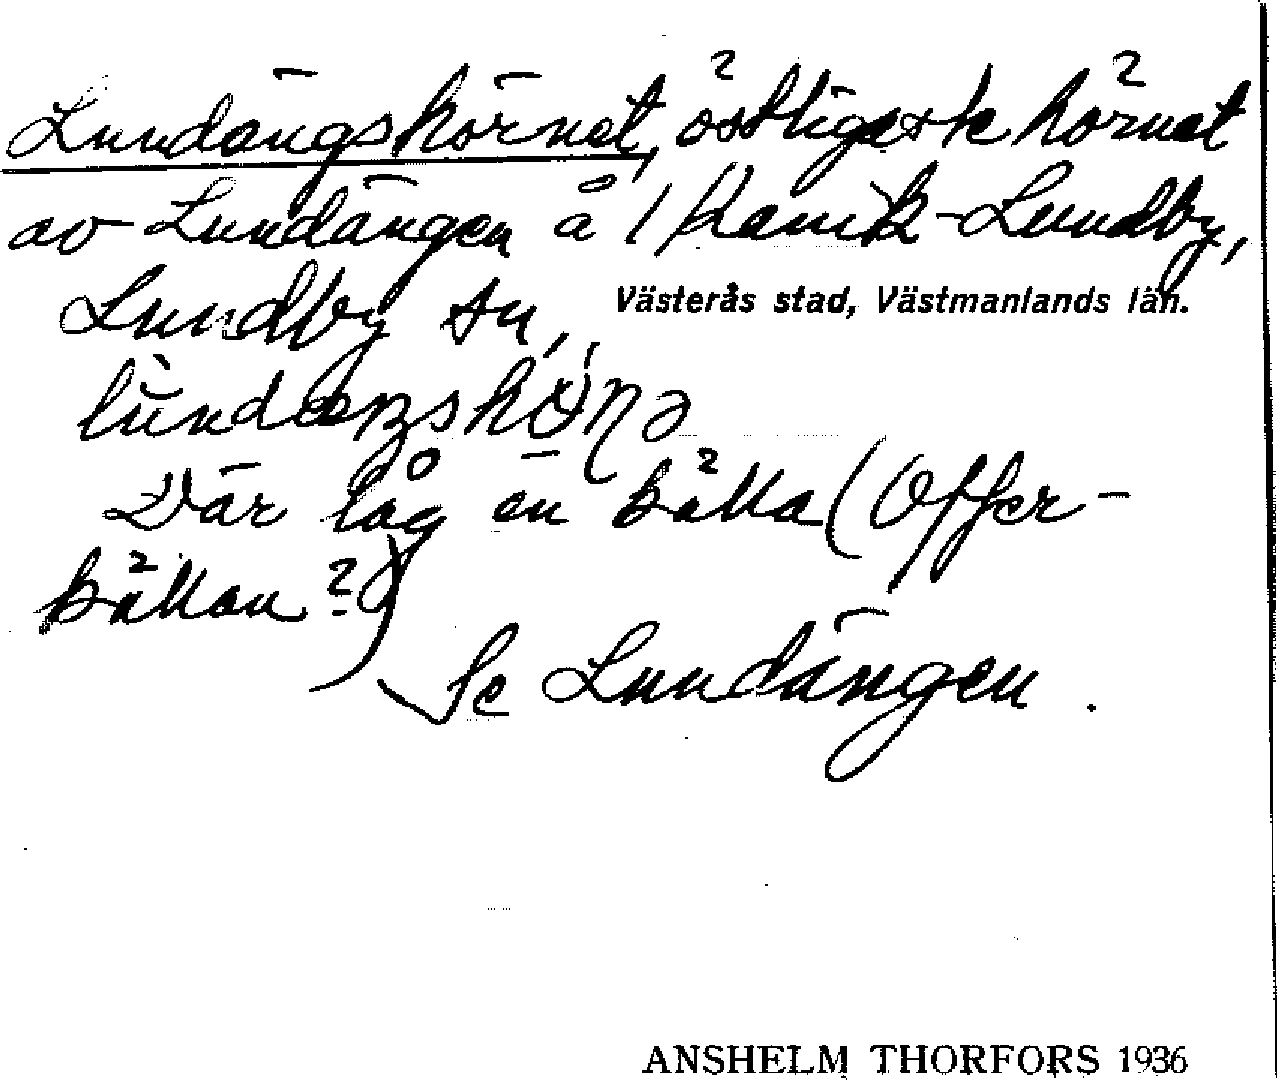 Lundängshörnet, östligaste hörnet
av Lundängen å 1 Kanik-Lundby,
Lundby sn,
Västerås stad, Västmanlands län.
Där låg en källa (Offer-
källan?)
Se Lundängen.
ANSHELM THORFORS 1936